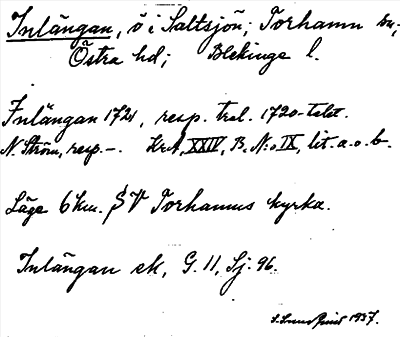 Inlängan, ö i Saltsjön; Torhamn sn;
Östra hd; Blekinge l.
Inlängan 1721, resp. tral. 1720-talet.
N. Ström, resp. -. KrA, XXIV, B. N:o IX, lit. a. o. b.
Läge 6 km. SV Torhamns kyrka.
Inlängan ek, G. 11, Sj. 96.
1937.